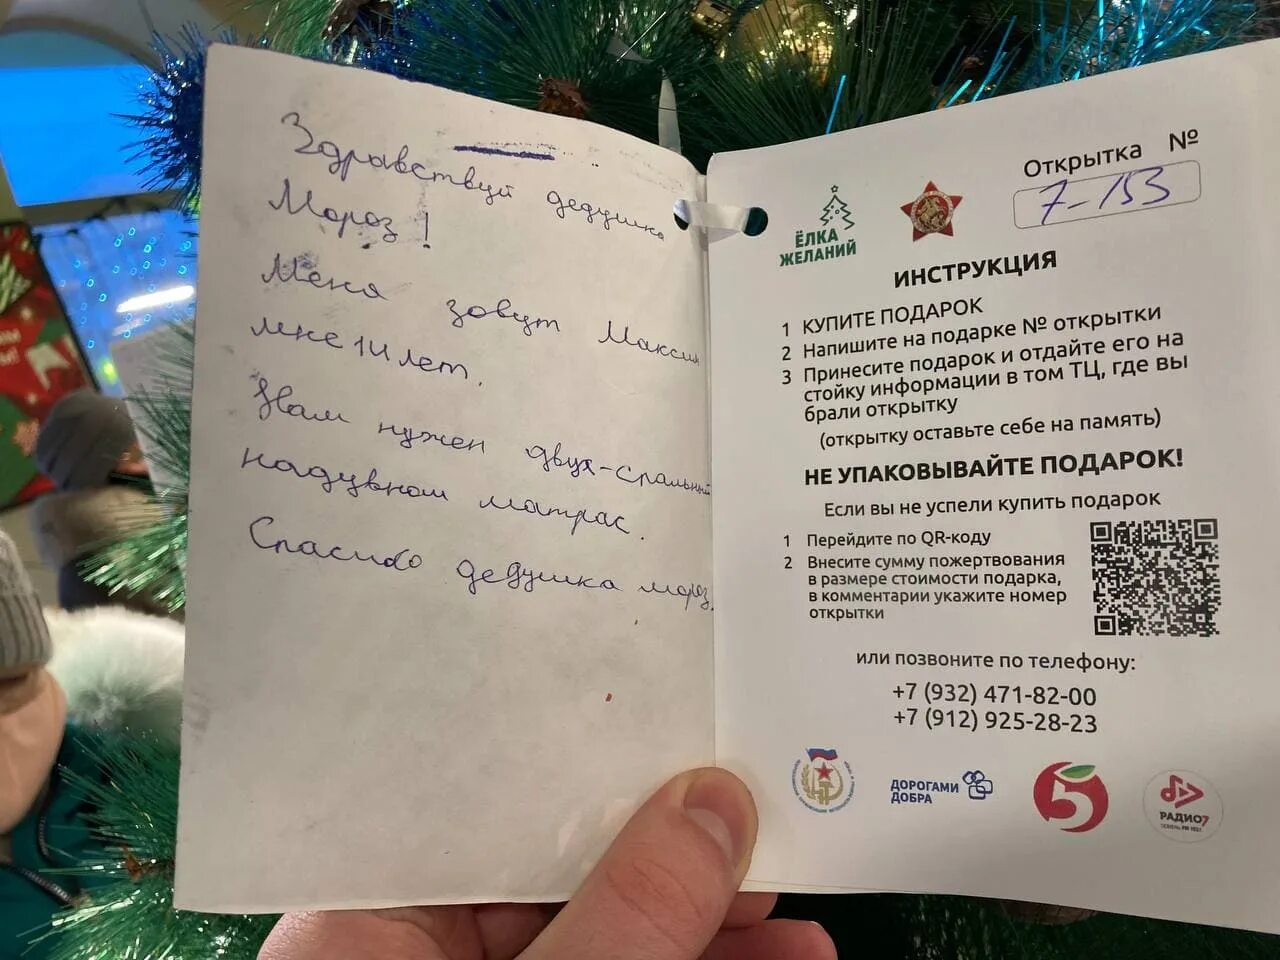 Здравствуй дедушка
Мороз!
Меня зовут Максим
мне 14 лет.
Нам нужен двух-спальный
надувной матрас.
Спасибо дедушка мороз.
Открытка №
7-153
ЁЛКА
ЖЕЛАНИЙ
ИНСТРУКЦИЯ
1 КУПИТЕ ПОДАРОК
2 Напишите на подарке № открытки
3 Принесите подарок и отдайте его на
стойку информации в том ТЦ, где вы
брали открытку
(открытку оставьте себе на память)
НЕ УПАКОВЫВАЙТЕ ПОДАРОК!
Если вы не успели купить подарок
1 Перейдите по QR-коду
2 Внесите сумму пожертвования
в размере стоимости подарка,
в комментарии укажите номер
открытки
или позвоните по телефону:
+7 (932) 471-82-00
+7 (912) 925-28-23
ДОРОГАМИ
ДОБРА
5
РАДИО7